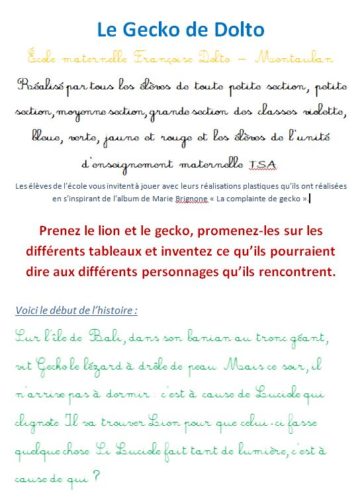 Le Gecko de Dolto
École maternelle Françoise Dolto – Montauban
Réalisé par tous les élèves de toute petite section, petite
section, moyenne section, grande section des classes violette,
bleue, verte, jaune et rouge et les élèves de l'unité
d'enseignement maternelle TSA
Les élèves de l'école vous invitent à jouer avec leurs réalisations plastiques qu'ils ont réalisées
en s'inspirant de l'album de Marie Brignone « La complainte de gecko ».
Prenez le lion et le gecko, promenez-les sur les
différents tableaux et inventez ce qu'ils pourraient
dire aux différents personnages qu'ils rencontrent.
Voici le début de l'histoire :
Sur l'île de Bali, dans son banian au tronc géant,
vit Gecko le lézard à drôle de peau. Mais ce soir, il
n'arrive pas à dormir : c'est à cause de Luciole qui
clignote. Il va trouver Lion pour que celui-ci fasse
quelque chose. Si Luciole fait tant de lumière, c'est à
cause de qui ?